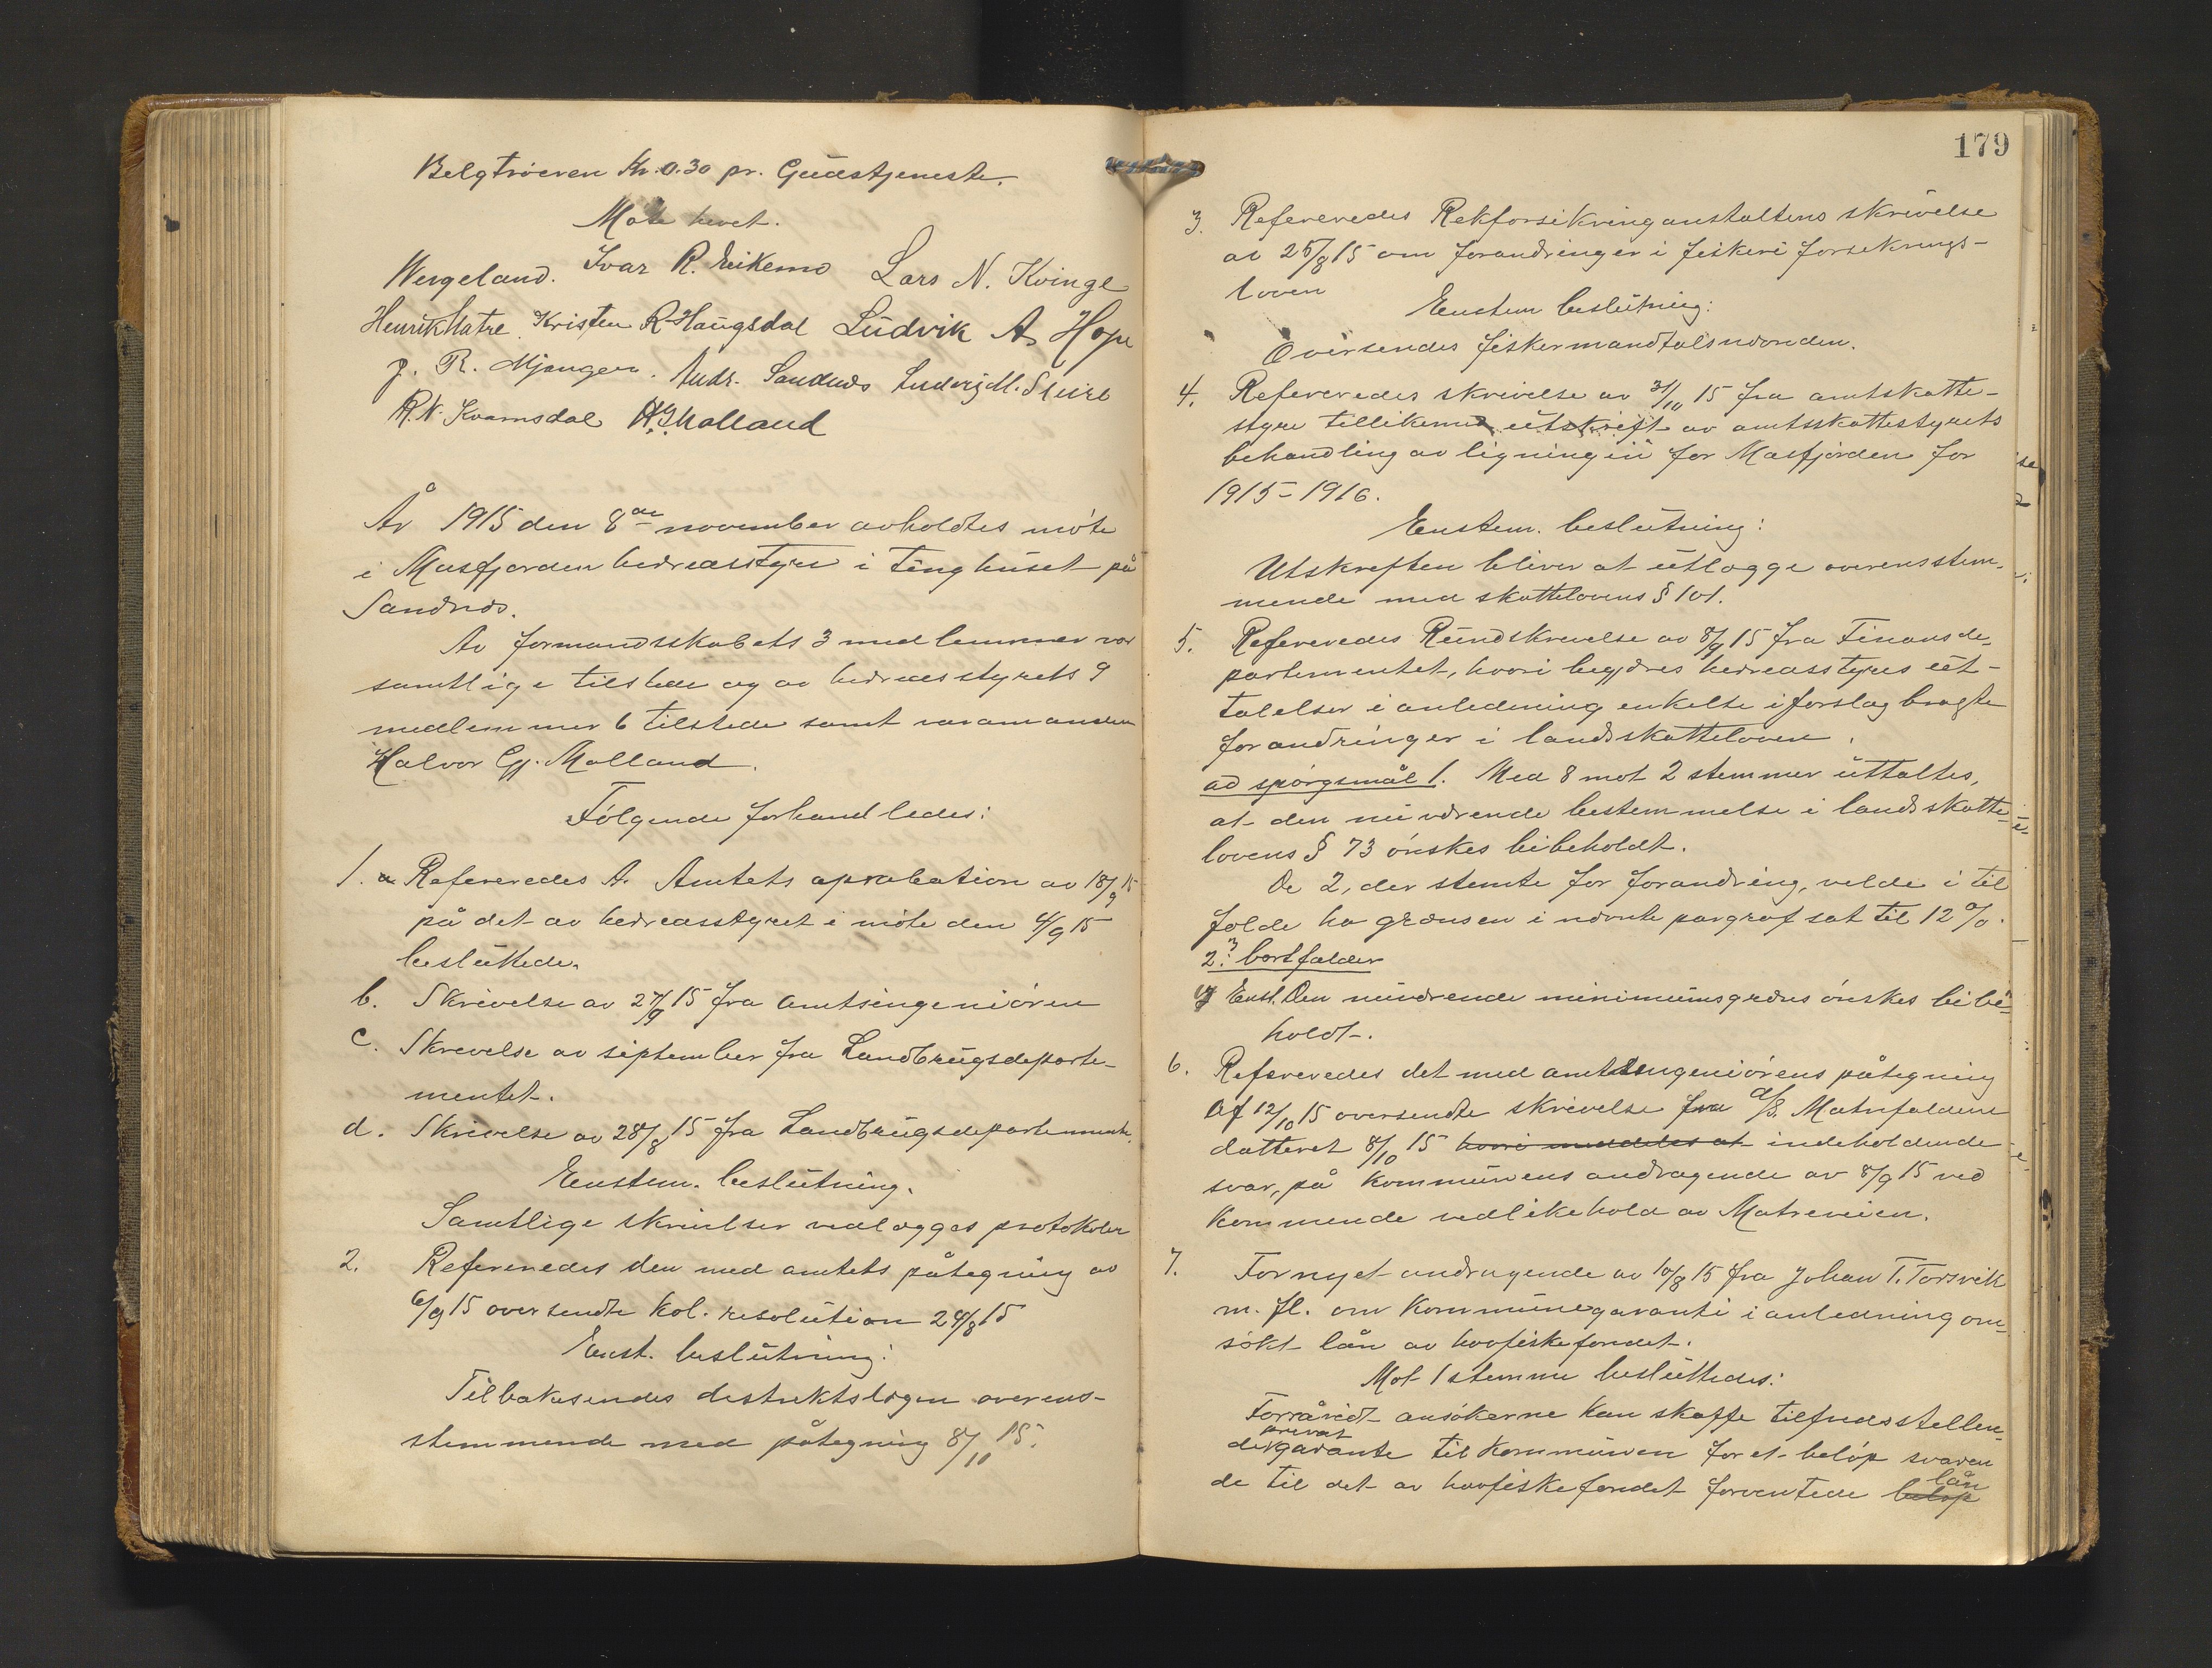 Belgtrøeren Kr. 0.30 pr. Gudstjeneste.
Møte hevet.
Wergeland. Ivar R. Eikemo Lars N. Kvinge
Henrik Matre Kristen R Haugsdal Ludvik A. Hope
J. R. Mjanger. Andr. Sandnæs Ludvig M. Sleire
R. N. Kvamsdal H. G. Molland
År 1915 den 8de november avholdtes møte
i Masfjorden herredsstyre i tinghuset på
Sandnæs.
Av formandsskabets 3 medlemmer var
samtlige tilstede og av herredsstyrets 9
medlemmer 6 tilstede samt varamanden
Halvor Gj. Molland.
Følgende forhandledes:
1. a Refereredes A. Amtets aprobation av 18/9 15
på det av herredsstyret i møte den 4/9 15
besluttede.
b. Skrivelse av 27/9 15 fra amtsingeniøren
c. Skrivelse av september fra Landbrugsdeparte-
mentet.
d. Skrivelse av 28/8 15 fra Landbrugsdepartementet.
Enstem. beslutning.
Samtlige skrivelser vedlægges protokolen
2. Refereredes den med amtets påtegning av
6/9 15 oversendte kgl. resolution 24/8 15
Enst. beslutning:
Tilbakesendes distriktslægen overens-
stemmende med påtegning 8/10 15.
179
3. Refereredes Rikforsikringanstaltens skrivelse
av 25/8 15 om forandringer i fiskeri forsekrings-
loven
Enstem beslutning:
Oversendes fiskermandtalsnævnden.
4. Refereredes skrivelse av 31/10 15 fra amtskatte-
styre tillikemed utskrift av amtsskattestyrets
behandling av ligningen for Masfjorden for
1915-1916.
Enstem. beslutning:
Utskriften bliver at utlægge overensstem-
mende med skattelovens § 101.
5. Refereredes Rundskrivelse av 8/9 15 fra Finansde-
partementet, hvori begjæres herredsstyres ut-
talelser i anledning enkelte i forslag bragte
forandringer i landsskatteloven.
ad spørgsmål 1. Med 8 mot 2 stemmer uttaltes,
at den nuværende bestemmelse i landsskatte-
lovens § 73 ønskes bibeholdt.
De 2, der stemte for forandring, vilde i til
fælde ha grænsen i nævnte pargraf sat til 12 %.
2. bortfalder
3 Enst. Den nuværende minimumsgrænse ønskes bibe-
holdt.
6. Refereredes det med amtsingeniørens påtegning
af 12/10 15 oversendte skrivelse fra A/S. Matrefaldene
datteret 8/10 15 hvori meddeles at indeholdende
svar, på kommunens andragende av 8/9 15 ved
kommende vedlikehold av Matreveien.
7. Fornyet andragende av 10/8 15 fra Johan T. Torsvik
m. fl. om Kommunegaranti i anledning om-
søkt lån av havfiskefondet.
Mot 1 stemme besluttedes:
Forsåvidt ansøkerne kan skaffe tilfredsstillen-
de privat garante til kommunen for et beløp svaren
de til det av havfiskefondet forventede beløp lån